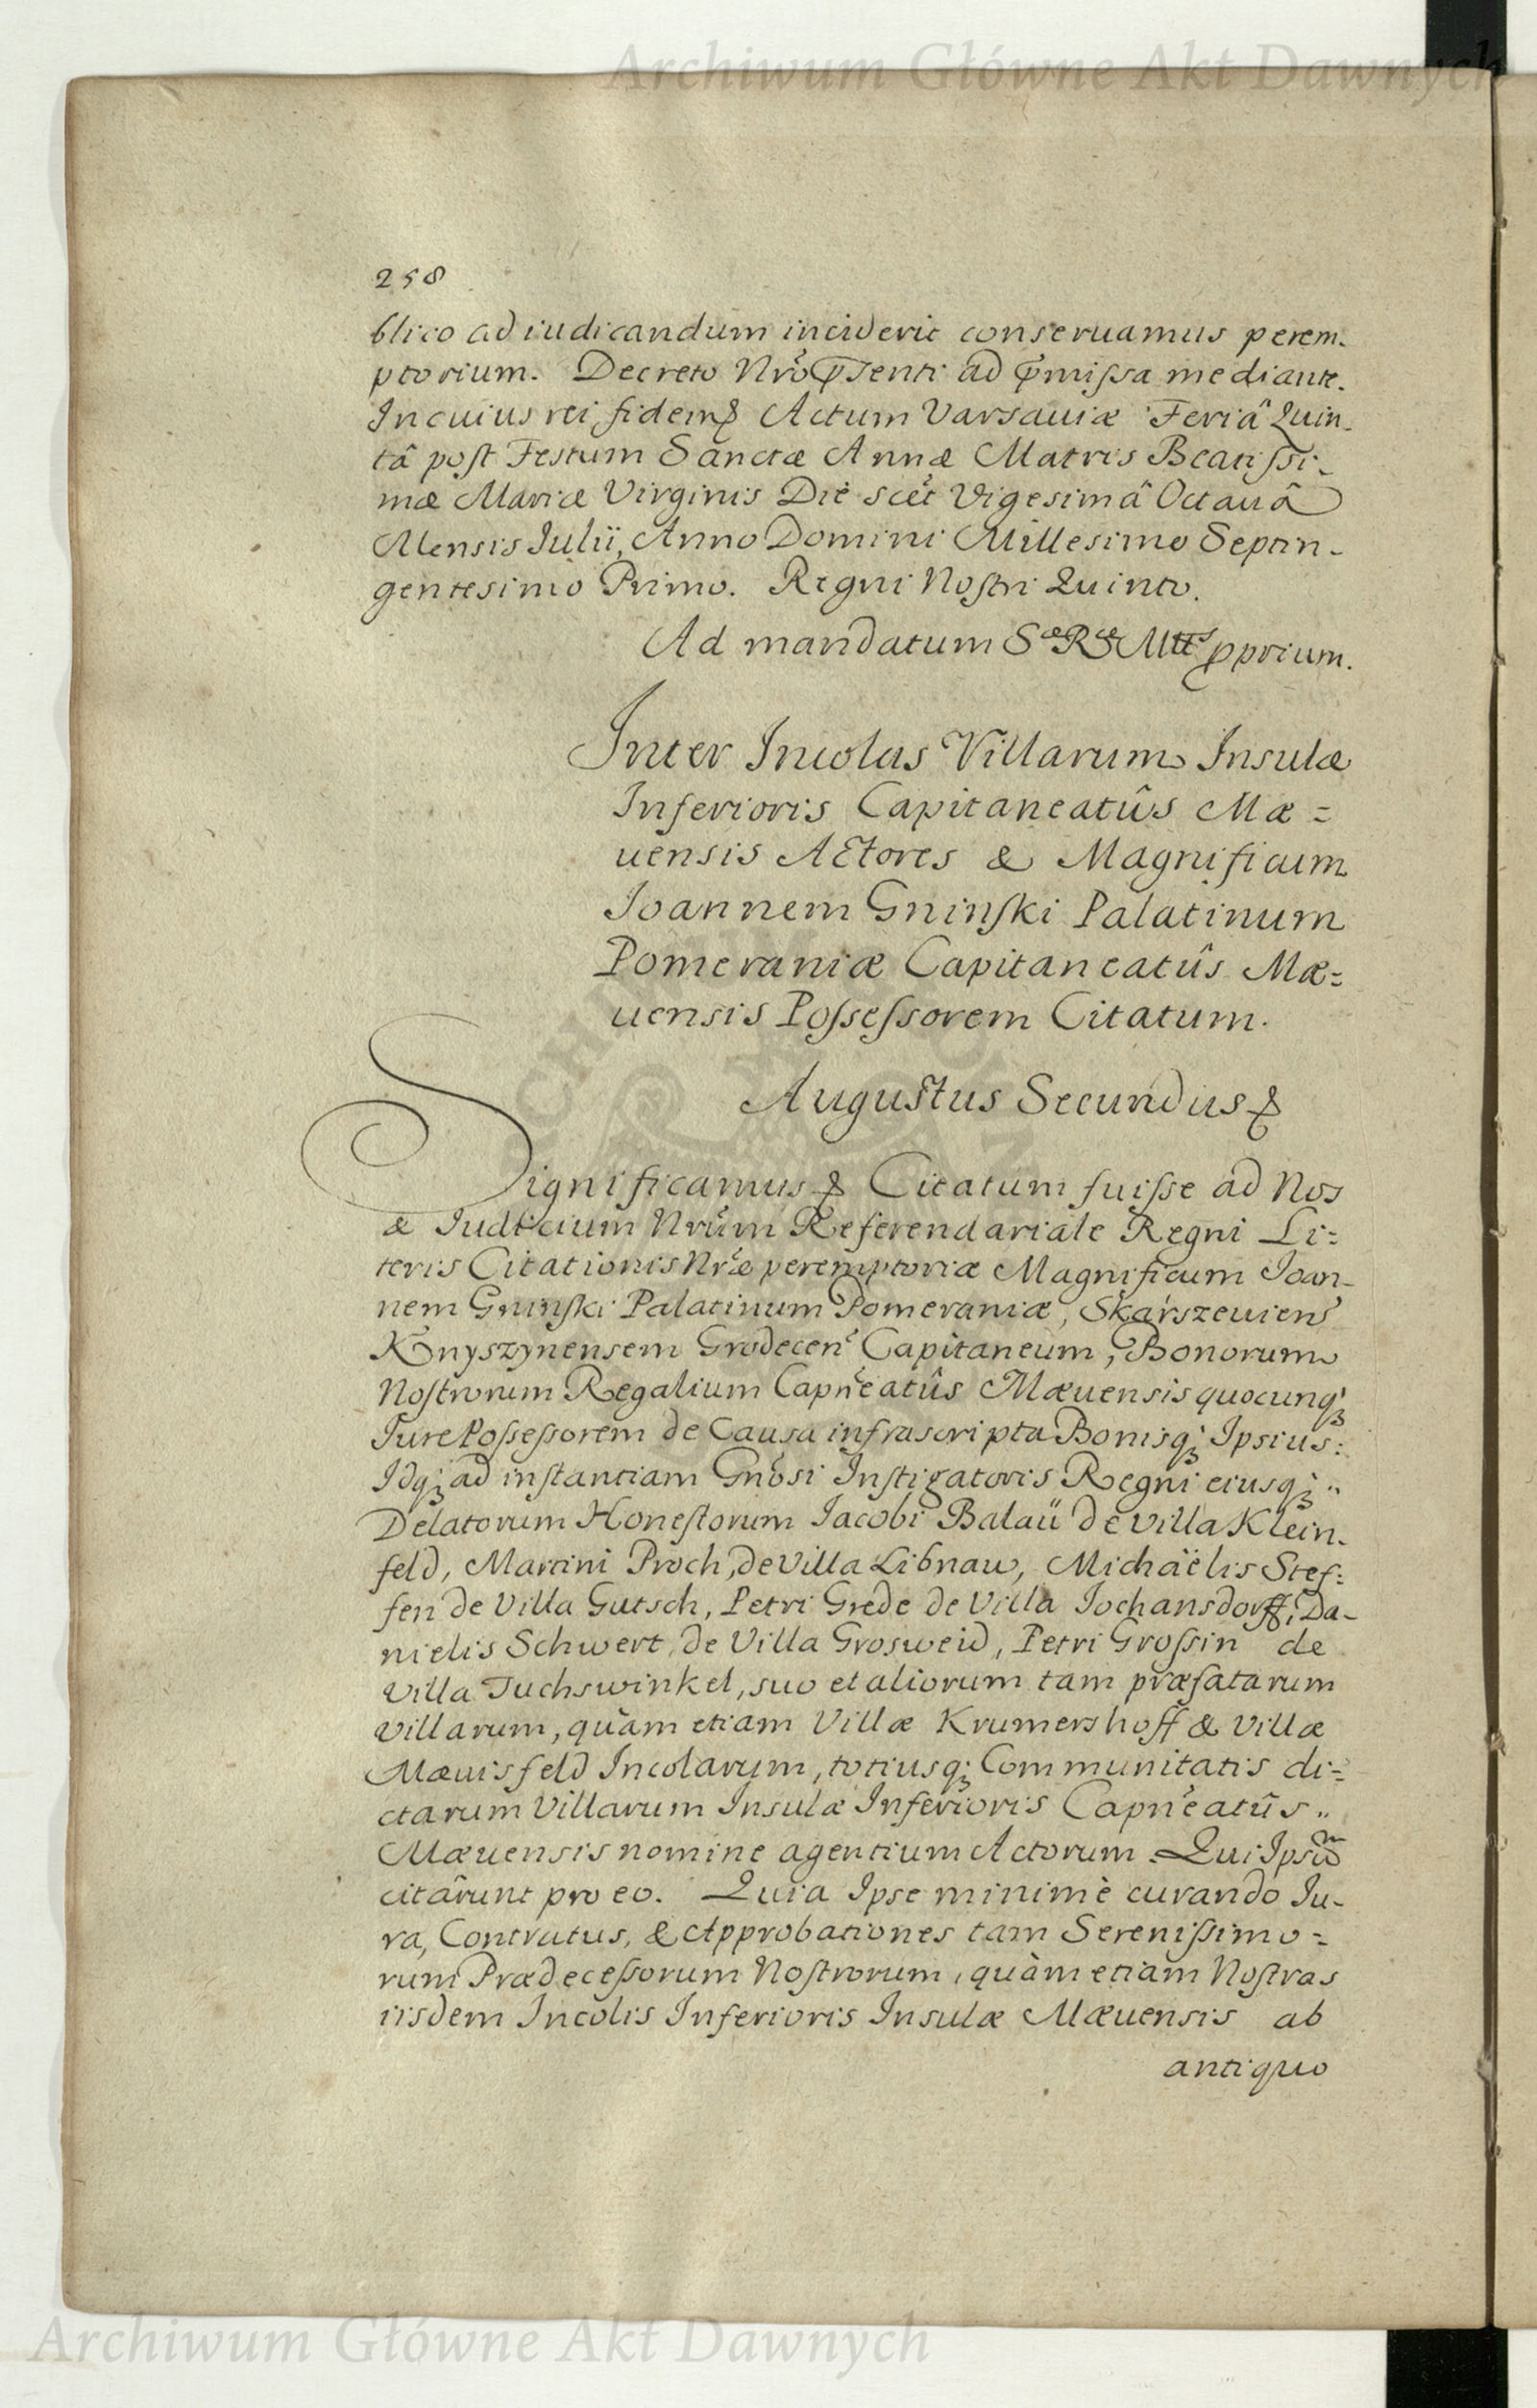 Archiwum Główne Akt Dawnych
258
blico adiudicandum inciderit conseruamus perem-
ptorium. Decreto Nrõ p̃senti ad p̃missa mediante.
In cuius rei fidem & Actum Varsauiæ Feriâ Quin-
tâ post Festum Sanctæ Annæ Matris Beatissi-
mæ Mariæ Virginis Die scet Vigesimâ Octauâ
Mensis Iulii, Anno Domini Millesimo Septin-
gentesimo Primo. Regni Nostri Quinto.
Ad mandatum Sæ Ræ Mttis pprium.
Inter Incolas Villarum Insulæ
Inferioris Capitaneatûs Mæ=
uensis Actores & Magnificum
Ioannem Gninski Palatinum
Pomeraniæ Capitaneatûs Mæ=
uensis Possessorem Citatum.
Augustus Secundus &
Significamus & Citatum fuisse ad Nos
& Iudicium Nrum Referendariale Regni Li=
teris Citationis Nræ peremptoriæ Magnificum Ioan-
nem Gninski Palatinum Pomeraniæ, Skarszeuien
Knyszynensem Grodecen Capitaneum, Bonorum
Nostrorum Regalium Capneatûs Mæuensis quocunq;
Iure Possessorem de Causa infrascripta Bonisq; Ipsius:
Idq; ad instantiam Gnosi Instigatoris Regni eiusq; "
Delatorum Honestorum Iacobi Balaü de Villa Klein-
feld, Martini Proch, de Villa Libnau, Michaëlis Stef:
fen de Villa Gutsch, Petri Grede de Villa Iochansdorff, Da-
nielis Schwert, de Villa Grosweid, Petri Grossin de
Villa Iuchswinkel, suo et aliorum tam præfatarum
Villarum, quàm etiam Villæ Krumershoff & Villæ
Mæuisfeld Incolarum, totiusq; Communitatis di=
ctarum Villarum Insulæ Inferioris Capneatûs "
Mæuensis nomine agentium Actorum. Qui Ipsum
citârunt pro eo. Quia Ipse minimè curando Iu-
ra, Contractus, & Approbationes tam Serenissimo=
rum Prædecessorum Nostrorum, quàm etiam Nostras
iisdem Incolis Inferioris Insulæ Mæuensis ab
antiquo
Archiwum Główne Akt Dawnych